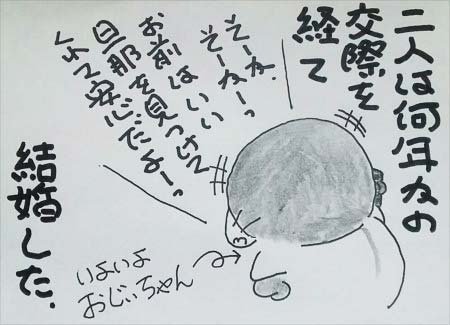 二人は何年力の
交際を
経て
そーか
そーかーっ
お前はいい
旦那を見つけて
くれて安心だよーっ
結婚した.
いよいよ
おじぃちゃん